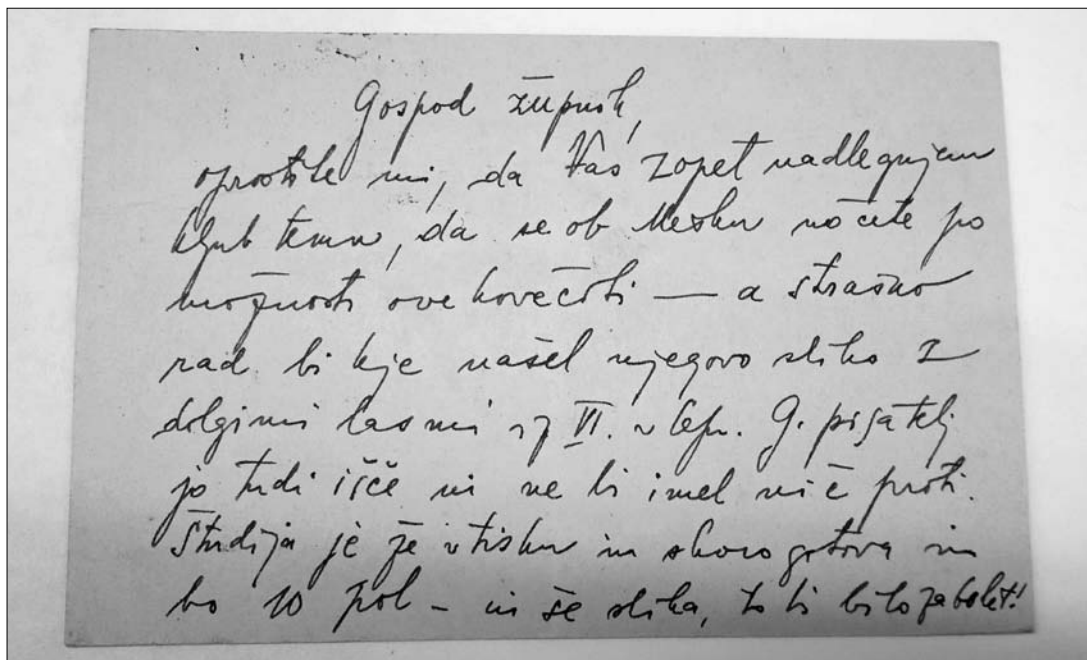 Gospod župnik,
oprostite mi, da Vas zopet nadlegujem
kljub temu, da se ob Mešku nočete po
možnosti ovekovečiti — a strašno
rad bi kje našel njegovo sliko z
dolgimi lasmi iz VI. v Cepr. G. pisatelj
jo tudi išče in ne bi imel nič proti.
Študija je že v tisku in skoro gotova in
bo 10 pol – in še slika, to bi bilo zabolet!